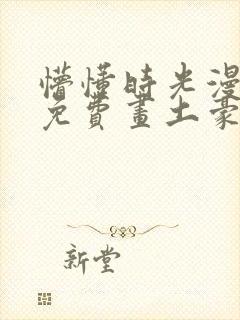 懵懂時光漫
免費畫土豪
新堂